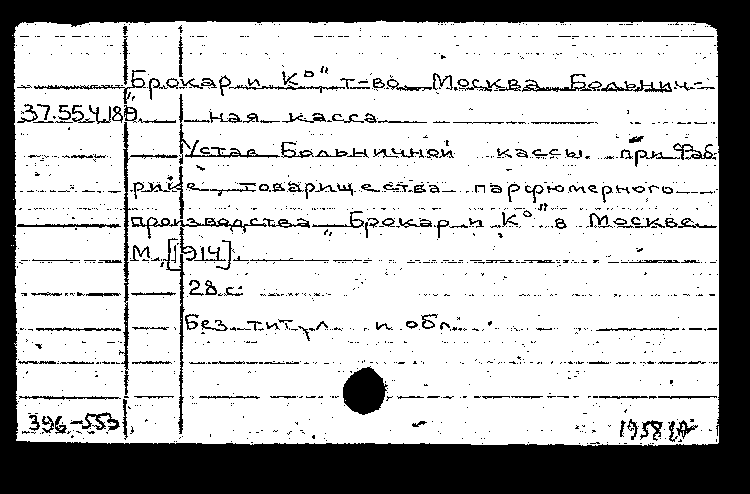 „Брокар и К°", т-во. Москва. Больнич-
37.554.189. ная касса.
Устав Больничной кассы при Фаб-
рике товарищества парфюмерного
производства „Брокар и К°" в Москве.
М., [1914].
28 с.
Без титул. и обл.
396-553
1958